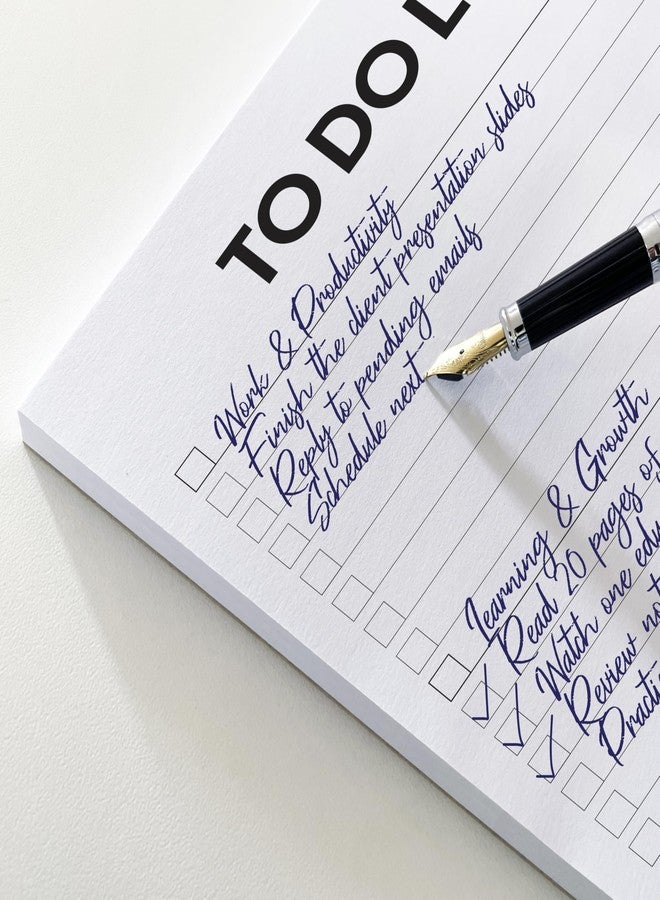 TO DO L
Work & Productivity
Finish the client presentation slides
Reply to pending emails
Schedule next
Learning & Growth
Read 20 pages of
Watch one edu
Review not
Practi